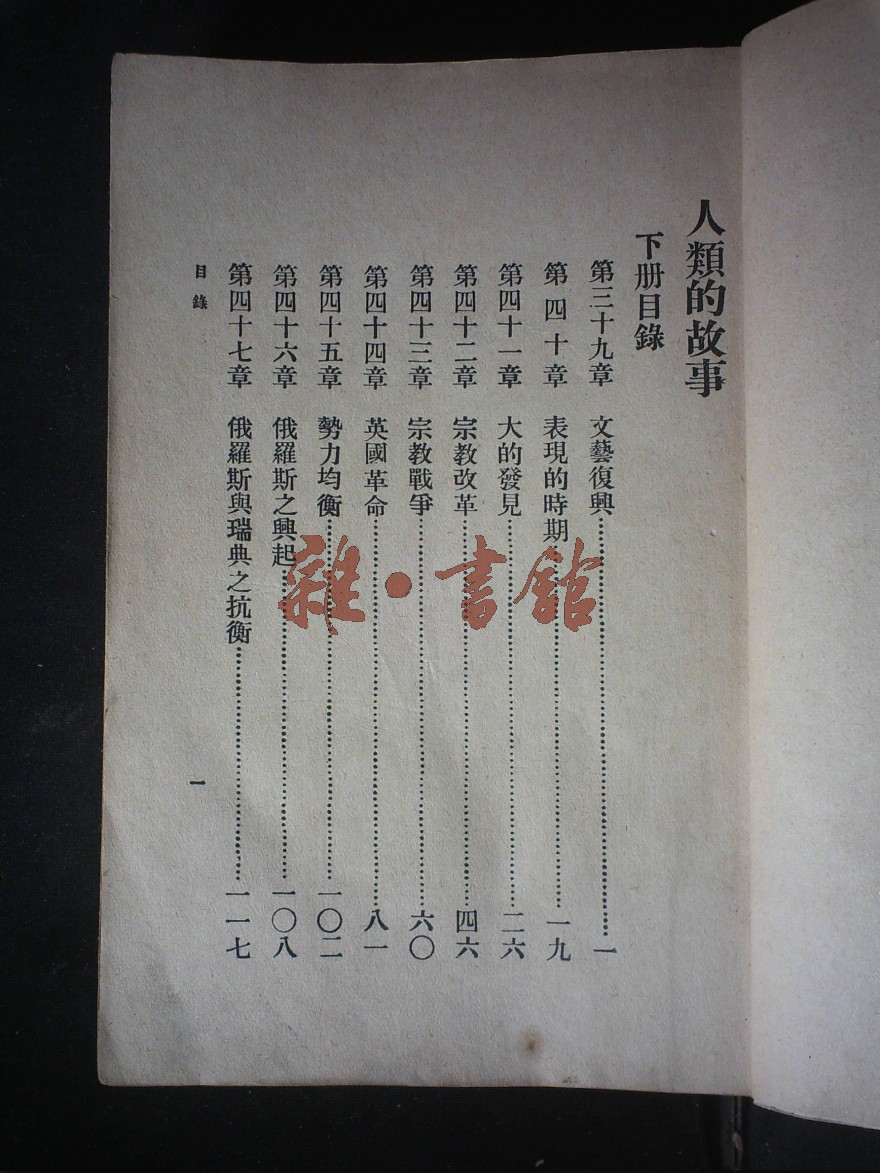 人類的故事
下册目錄
第三十九章 文藝復興…………一
第四十章 表現的時期…………一九
第四十一章 大的發見…………二六
第四十二章 宗教改革…………四六
第四十三章 宗教戰爭…………六〇
第四十四章 英國革命…………八一
第四十五章 勢力均衡…………一〇二
第四十六章 俄羅斯之興起…………一〇八
第四十七章 俄羅斯與瑞典之抗衡…………一一七
目錄
一
雜·書館